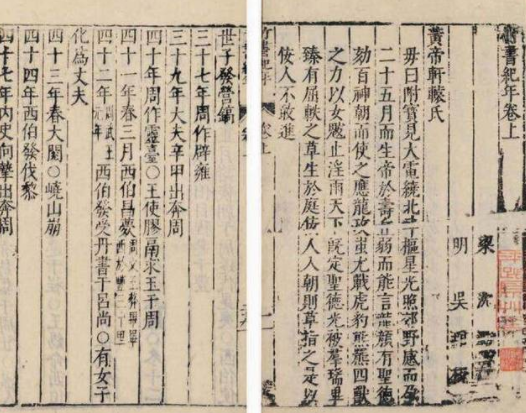 竹書紀年卷上
梁 沈
明 吳琯校
黃帝軒轅氏
母曰附寶見大電繞北斗樞星光照郊野感而孕
二十五月而生帝於壽丘弱而能言龍顏有聖德
劾百神朝而使之應龍攻蚩尤戰虎豹熊羆四獸
之力以女魃止淫雨天下既定聖德光被羣瑞畢
臻有屈軼之草生於庭佞人入朝則草指之是以
佞人不敢進
世子發營鎬
三十七年周作辟雍
三十九年大夫辛甲出奔周
四十年周作靈臺○王使膠鬲求玉于周
四十一年春三月西伯昌薨
四十二年周武王元年西伯發受丹書于呂尚○有女子
化爲丈夫
四十三年春大閱○嶢山崩
四十四年西伯發伐黎
四十七年內史向摯出奔周